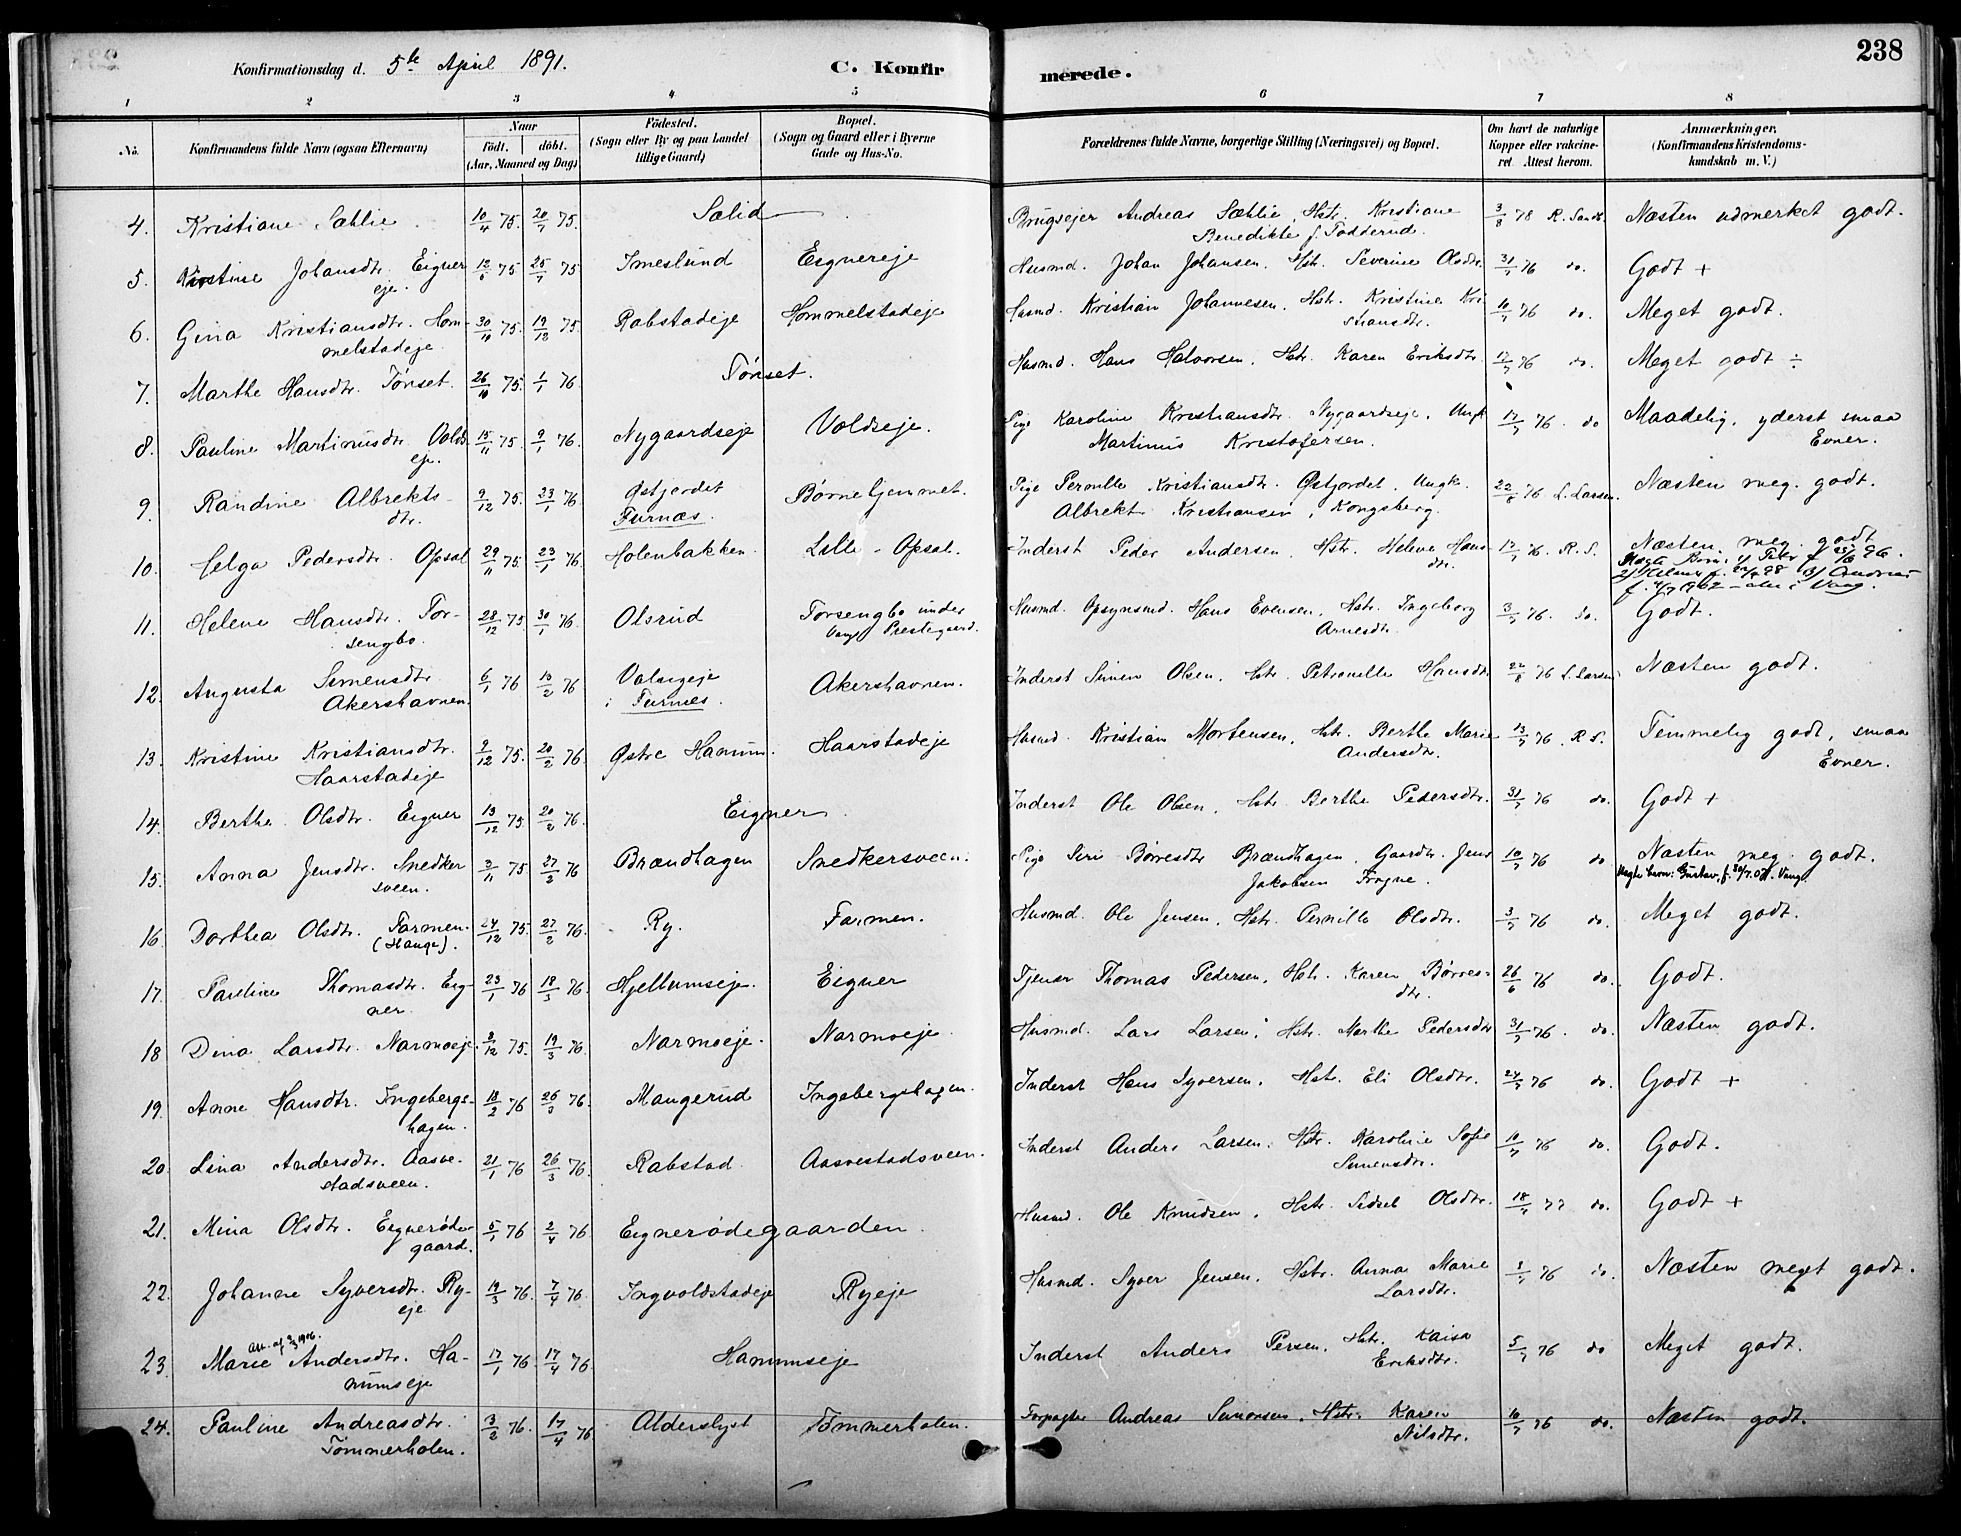 238
Konfirmationsdag d. 5te April 1891. C. Konfirmerede.
1 2 3 4 5 6 7 8
No. Konfirmandens fulde Navn (ogsaa Efternavn) Naar født. døbt. (Aar, Maaned og Dag) Fødested. (Sogn eller By og paa Landet tillige Gaard) Bopæl. (Sogn og Gaard eller i Byerne Gade og Hus-No. Forældrenes fulde Navne, borgerlige Stilling (Næringsvei) og Bopæl. Om havt de naturlige Kopper eller vakcineret. Attest herom. Anmærkninger. (Konfirmandens Kristendomskundskab m. V.)
4. Kristiane Sæhlie 10/4 75. 20/7 75. Sælid Brugsejer Andreas Sæhlie, Hstr. Kristiane 3/8 78 R. Sandb. Næsten udmerket godt.
Benedikte f. Todderud.
5. Kirstine Johansdtr. Eigner 75 25/7 75 Imeslund Eignereje Husmd. Johan Johansen. Hstr. Severine Olsdtr. 31/7 76 do. Godt +
eje.
6. Gina Kristiansdtr. Hom- 30/10 75. 19/12 75. Rabstadeje Hommelstadeje Husmd. Kristian Johannesen. Hstr. Kristine Kri 10/7 76 do. Meget godt.
melstadeje stiansdtr.
7. Marthe Hansdtr. Tønset. 26/10 75. 1/1 76. Tønset. Husmd. Hans Halvorsen. Hstr. Karen Eriksdtr. 17/7 76 do. Meget godt ÷
8. Pauline Martinusdtr. Volds 15/11 75. 9/1 76. Nygaardseje Voldseje. Pige Karoline Kristiansdtr. Nygaardseje. Ungk. 17/7 76. do Maadelig, yderst smaa
eje. Martinus Kristofersen. Evner.
9. Randine Albrekts- 9/12 75. 23/1 76. Østjordet Børnehjemmet. Pige Pernille Kristiansdtr. Østjordet. Ungk. 22/8 76 L. Larsen. Næsten meg. godt.
dtr. Furnæs. Albrekt Kristiansen, Kongsberg.
10. Helga Pedersdtr. Opsal 29/11 75. 23/1 76 Holenbakken Lille-Opsal. Inderst Peder Andersen. Hstr. Helene Hans- 17/7 76. R. S. Næsten meg. godt
dtr.
11. Helene Hansdtr. Tor- 28/12 75 30/1 76. Olsrud Torsengbo under Husmd. Opsynsmd. Hans Evensen, Hstr. Ingeborg 3/7 76. do. Godt.
sengbo. Vang Prestegaard. Arnesdtr.
12. Augusta Simensdtr. 6/1 76 13/2 76 Valseje Akershavnen. Inderst Simen Olsen. Hstr. Petronelle Hansdtr. 22/8 76 L. Larsen Næsten godt.
Akershavnen. i Furnes.
13. Kristine Kristiansdtr. 9/12 75. 20/2 76. Østre Hamum. Haarstadeje Husmd. Kristian Mortensen. Hstr. Berthe Marie 13/7 76. R. S. Temmelig godt, smaa
Haarstadeje Andersdtr. Evner.
14. Berthe Olsdtr. Eigner 13/12 75 20/2 76. Eigner Inderst Ole Olsen. Hstr. Berthe Pedersdtr. 31/7 76 do. Godt +
15. Anna Jensdtr. Snedker 3/11 75. 27/2 76 Brændhagen Snedkersveen. Pige Siri Børresdtr. Brændhagen, Gaardbr. Jens 10/7 76 do Næsten meg. godt.
sveen. Jakobsen Frogne.
16. Dorthea Olsdtr. Farmen. 24/12 75. 27/2 76. Ry. Farmen. Husmd. Ole Jensen. Hstr. Pernille Olsdtr. 3/7 76 do. Meget godt.
(Hauge).
17. Pauline Thomasdtr. Eig- 23/1 76 18/3 76. Hjellumseje. Eigner Tjener Thomas Pedersen. Hstr. Karen Børres- 26/6 76 do. Godt.
ner. dtr.
18 Dina Larsdtr. Narmoeje 2/12 75. 19/3 76. Narmoeje. Narmoeje Husmd. Lars Larsen. Hstr. Marthe Pedersdtr 31/7 76. do. Næsten godt.
19. Anne Hansdtr. Ingebergs- 18/2 76 26/3 76. Mangerud Ingebergshagen. Inderst Hans Syversen. Hstr. Eli Olsdtr. 24/7 76 do. Godt +
hagen.
20. Lina Andersdtr. Aasve- 21/1 76 26/3 76. Rabstad. Aasvestadsveen. Inderst Anders Larsen. Hstr. Karolin Sofie 10/7 76 do. Godt.
stadsveen. Simensdtr.
21. Mina Olsdtr. Eignerøde- 5/1 76 2/4 76 Eignerødegaarden Husmd. Ole Knudsen. Hstr. Sidsel Olsdtr. 18/7 77 do. Godt +
gaard.
22. Johanne Syversdtr. Ry- 19/3 76. 7/4 76. Ingvoldstadeje Ryeje Husmd. Syver Jensen. Hstr. Anna Marie 76 do. Næsten meget godt.
eje Larsdtr.
23. Marie Andersdtr. Ha- 17/1 76. 17/4 76 Hamumseje Inderst Anders Persen. Hstr. Kaisa 5/7 76 do Meget godt.
mumseje Eriksdtr.
24. Pauline Andreasdtr. 3/2 76. 17/4 76 Alderslyst Tømmerholen. Forpagter Andreas Simonsen. Hstr. Karen 10/7 76 do. Næsten godt.
Tømmerholen. Nilsdtr.